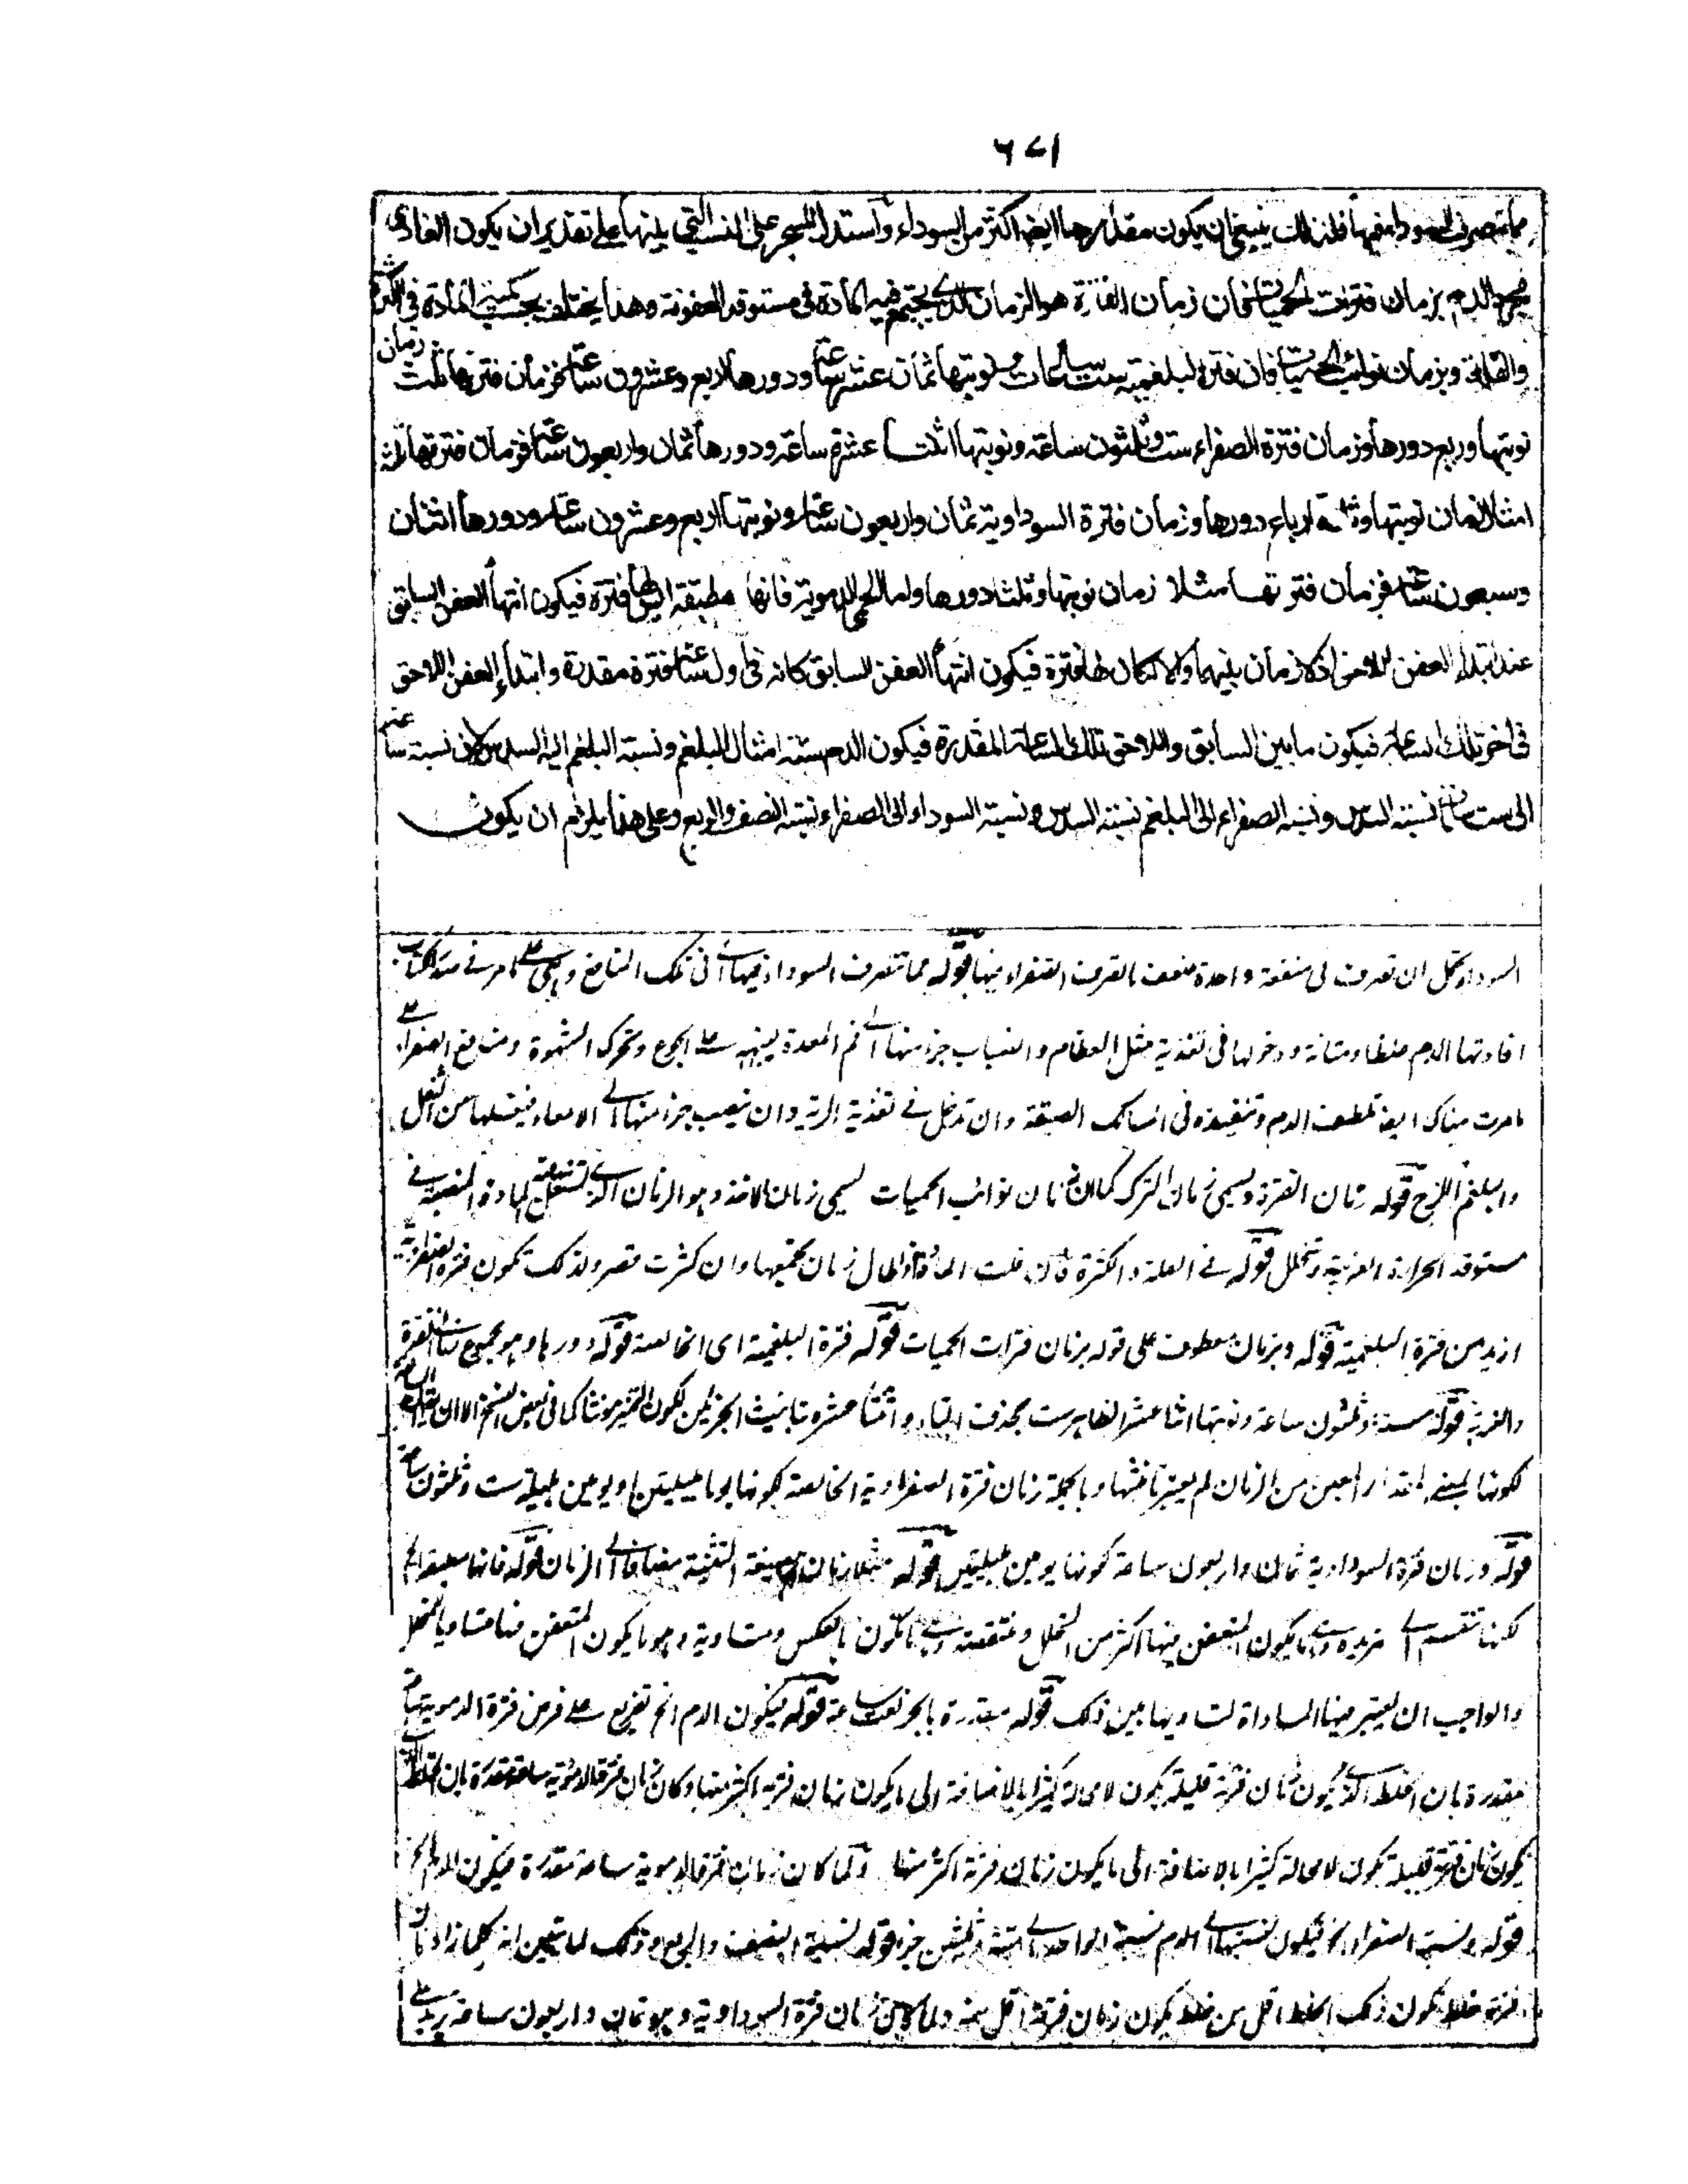 ٦٧١
مما تتصرف السوداء فيها فلذلك ينبغي ان يكون مقدارها ايضا اكثر من السوداء واستدل المسيحي على النسب التي بينها على تقدير ان يكون الغاذي
مجرد الدم بزمان فترات الحميات فان زمان الفترة هو الزمان الذي يجتمع فيه المادة في مستوقد العفونة وهذا يختلف بحسب كمية المادة في الكثرة
والقلة وبزمان نوائب الحميات فان فترة البلغمية ست ساعات ونوبتها ثمان عشر ساعة ودورها اربع وعشرون ساعة فزمان فترتها ثلث زمان
نوبتها وربع دورها وزمان فترة الصفراء ست وثلثون ساعة ونوبتها اثنتا عشرة ساعة ودورها ثمان واربعون ساعة فزمان فترتها ثلثة
امثال زمان نوبتها وثلثة ارباع دورها وزمان فترة السوداوية ثمان واربعون ساعة ونوبتها اربع وعشرون ساعة ودورها اثنتان
وسبعون ساعة فزمان فترتها مثلا زمان نوبتها وثلثا دورها واما الحمى الدموية فانها مطبقة ليس لها فترة فيكون انتهاء العفن السابق
عند ابتداء العفن اللاحق اذ لا زمان بينهما والا لكان لها فترة فيكون انتهاء العفن السابق كانه في اول ساعة فترة مقدرة وابتداء العفن اللاحق
في اخر تلك الساعة فيكون ما بين السابق واللاحق تلك الساعة المقدرة فيكون الدم ستة امثال البلغم ونسبة البلغم اليه السدس لان نسبة ساعة
الى ست ساعات نسبة السدس ونسبة الصفراء الى البلغم نسبة السدس ونسبة السوداء الى الصفراء نسبة النصف والربع وعلى هذا يلزم ان يكون
السوداء يحتمل ان تصرف في منفعة واحدة ضعف ما تصرف الصفراء فيها قوله مما تتصرف السوداء فيها اي في تلك المنافع وهي على ما مر في
افادتها الدم غلظا ومتانة ودخولها في تغذية مثل العظام وانصباب جزء منها الى فم المعدة لينبه على الجوع وتحرك الشهوة ومنافع الصفراء على
ما مرت هناك ايضا تلطيف الدم وتنفيذه في المسالك الضيقة وان تدخل في تغذية الرية وان ينصب جزء منها الى الامعاء فيغسلها من الثفل
والبلغم اللزج قوله زمان الفترة ويسمى زمان الترك كما ان زمان نوائب الحميات يسمى زمان الاخذ وهو الزمان الذي تشتعل فيه المادة المنصبة في
مستوقد الحرارة الغريبة وتتحلل قوله في القلة والكثرة فان قلت المادة طال زمان تجمعها وان كثرت قصر ولذلك تكون فترة الصفراوية
ازيد من فترة البلغمية قوله وبزمان معطوف على قوله بزمان فترات الحميات قوله فترة البلغمية اي الخالصة قوله دورها وهو مجموع زمان الفترة
والنوبة قوله ستة وثلثون ساعة ونوبتها اثنا عشر الظاهر ست بحذف التاء واثنتا عشرة بتانيث الجزئين لكون التمييز مونثا كما في بعض النسخ الا ان
لكونها بمعنى مقدار معين من الزمان لم يعتبر تانيثها وبالجملة زمان فترة الصفراوية الخالصة لكونها يوما بليلتين او يومين بليلة ست وثلثون ساعة
قوله وزمان فترة السوداوية ثمان واربعون ساعة لكونها يومين بليلتين قوله مثلا زمان بصيغة التثنية مضافا الى الزمان قوله فانها مطبقة الخ
لكنها تنقسم الى متزيدة وهي ما يكون المتعفن فيها اكثر من المتحلل ومتنقصة وهي ما تكون بالعكس ومتساوية وهو ما يكون المتعفن فيها مساويا للمتحلل
والواجب ان يعتبر هنا المساواة لتساويها بين ذلك قوله مقدرة بالجر نعت ساعة قوله فيكون الدم الخ تفريع على فرض فترة الدموية ساعة
مقدرة بان الخلط الذي يكون زمان فترته قليلة يكون لا محالة كثيرا بالاضافة الى ما يكون زمان فترته اكثر منها وكان زمان فترة الدموية ساعة مقدرة بان الخلط الذي
يكون زمان فترته قليلة يكون لا محالة كثيرا بالاضافة الى ما يكون زمان فترته اكثر منها ولما كان زمان فترة الدموية ساعة مقدرة فيكون الدم الخ
قوله ونسبة الصفراء الخ فيكون نسبتها الى الدم نسبة الواحد الى ستة وثلثين جزء قوله نسبة النصف والربع وذلك لما تبين انه كلما زاد زمان
فترة خلط يكون ذلك الخلط اقل من خلط يكون زمان فترته اقل منه ولما كان زمان فترة السوداوية وهو ثمان واربعون ساعة يزيد على